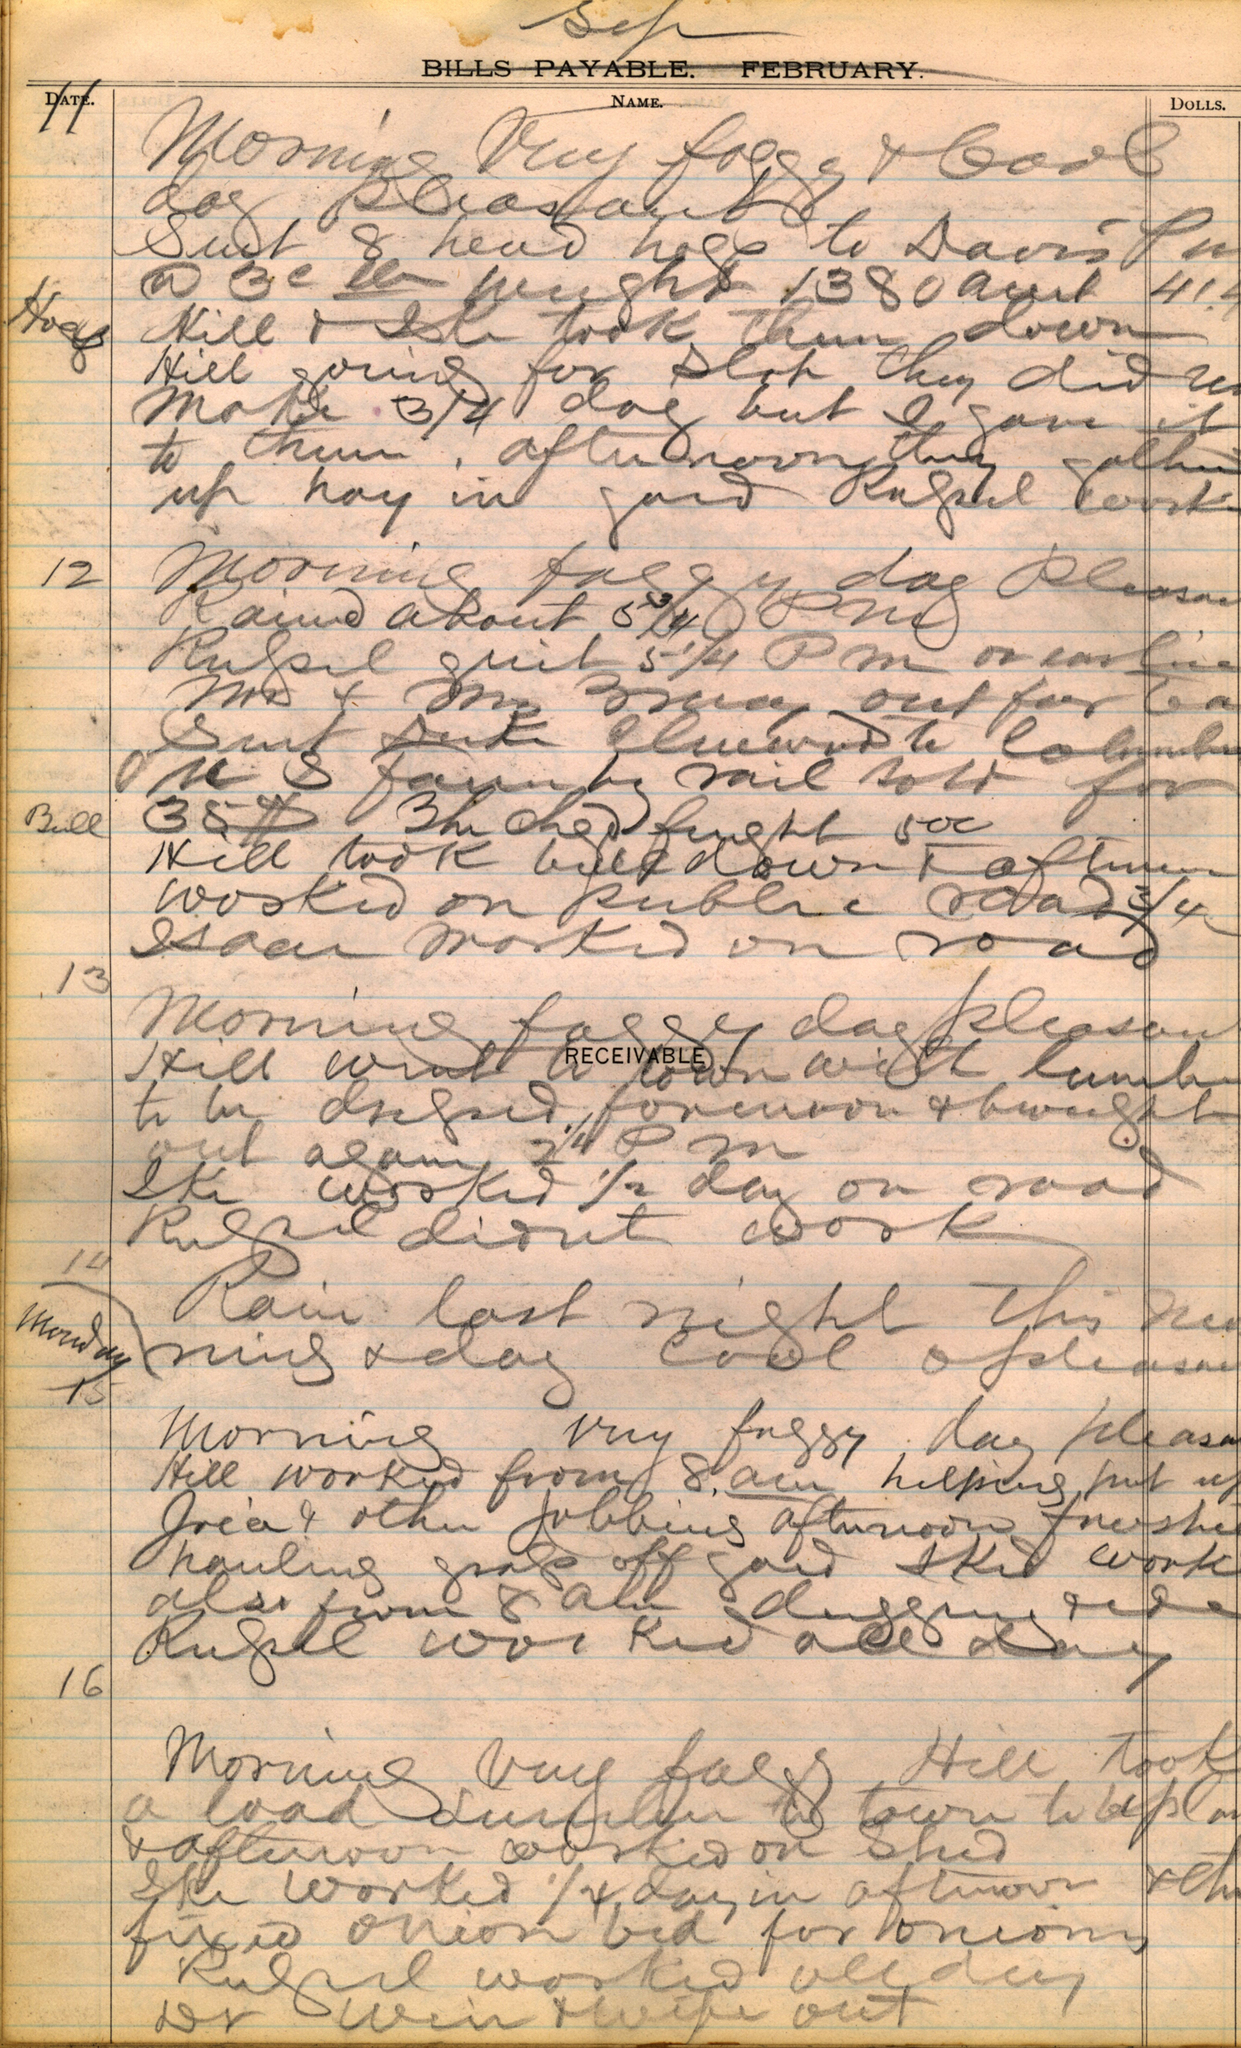 Sep
BILLS PAYABLE. FEBRUARY.
DATE. NAME. DOLLS.
11
Morning Very foggy & Cool
day pleasant
Sent 8 head hogs to Davis
@ 3c lb weight 1380 amt 41.4
Hogs
Hill & Ike took them down
Hill going for slop they did
make 3/4 day but I gave it
to them. afternoon they
up hay in yard Russel work
12
Morning foggy day Pleasan
Raind about 5 3/4 P M
Russel quit 5 1/4 P M
Mr & Mrs out for
Sent Duke to Columbu
sold for
Bull
35 chgd freight 50c
Hill took bull down & afternoon
worked on public road 3/4
Isaac worked on road
13
Morning foggy day pleasan
RECEIVABLE
Hill went to town with lumbe
to be forenoon & brought
out again 2 1/4 P M
Ike worked 1/2 day on road
Russel didnt work
14
Rain last night this mor
ning & day cool & pleasan
Monday
15
Morning very foggy day pleasan
Hill worked from 8 am helping put up
& other jobbing afternoon
hauling grass off yard Ike work
also from 8 am
Russel worked all day
16
Morning very foggy Hill took
a load lumber to town to
& afternoon worked on Shed
Ike worked 1/4 day in afternoon &
fixed onion bed for onions
Russel worked all day
Dr & wife out